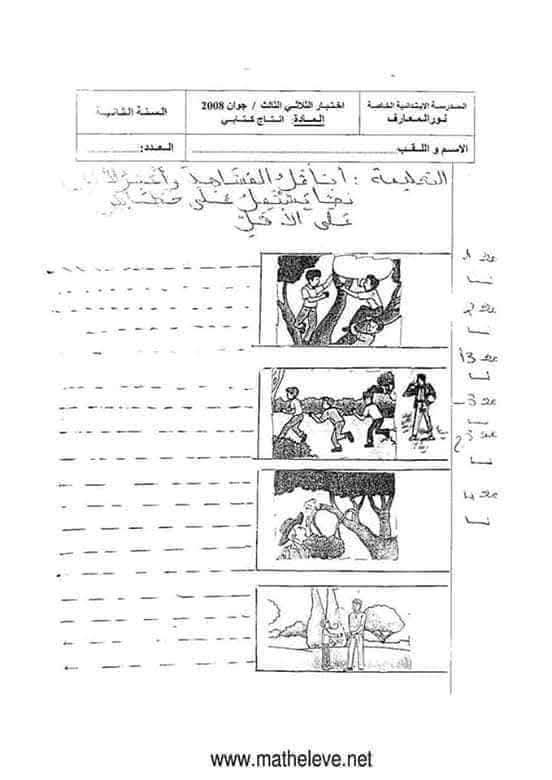 المدرسة الابتدائية الخاصة
نور المعارف
اختبار الثلاثي الثالث / جوان 2008
المادة: انتاج كتابي
السنة الثانية
الاسم و اللقب:
العدد:
التعليمة: أتأمل المشاهد و
نصا يشتمل على خطاب
على الأقل
مع 1
مع 2
مع 3
مع 3
مع 3
مع 4
www.matheleve.net